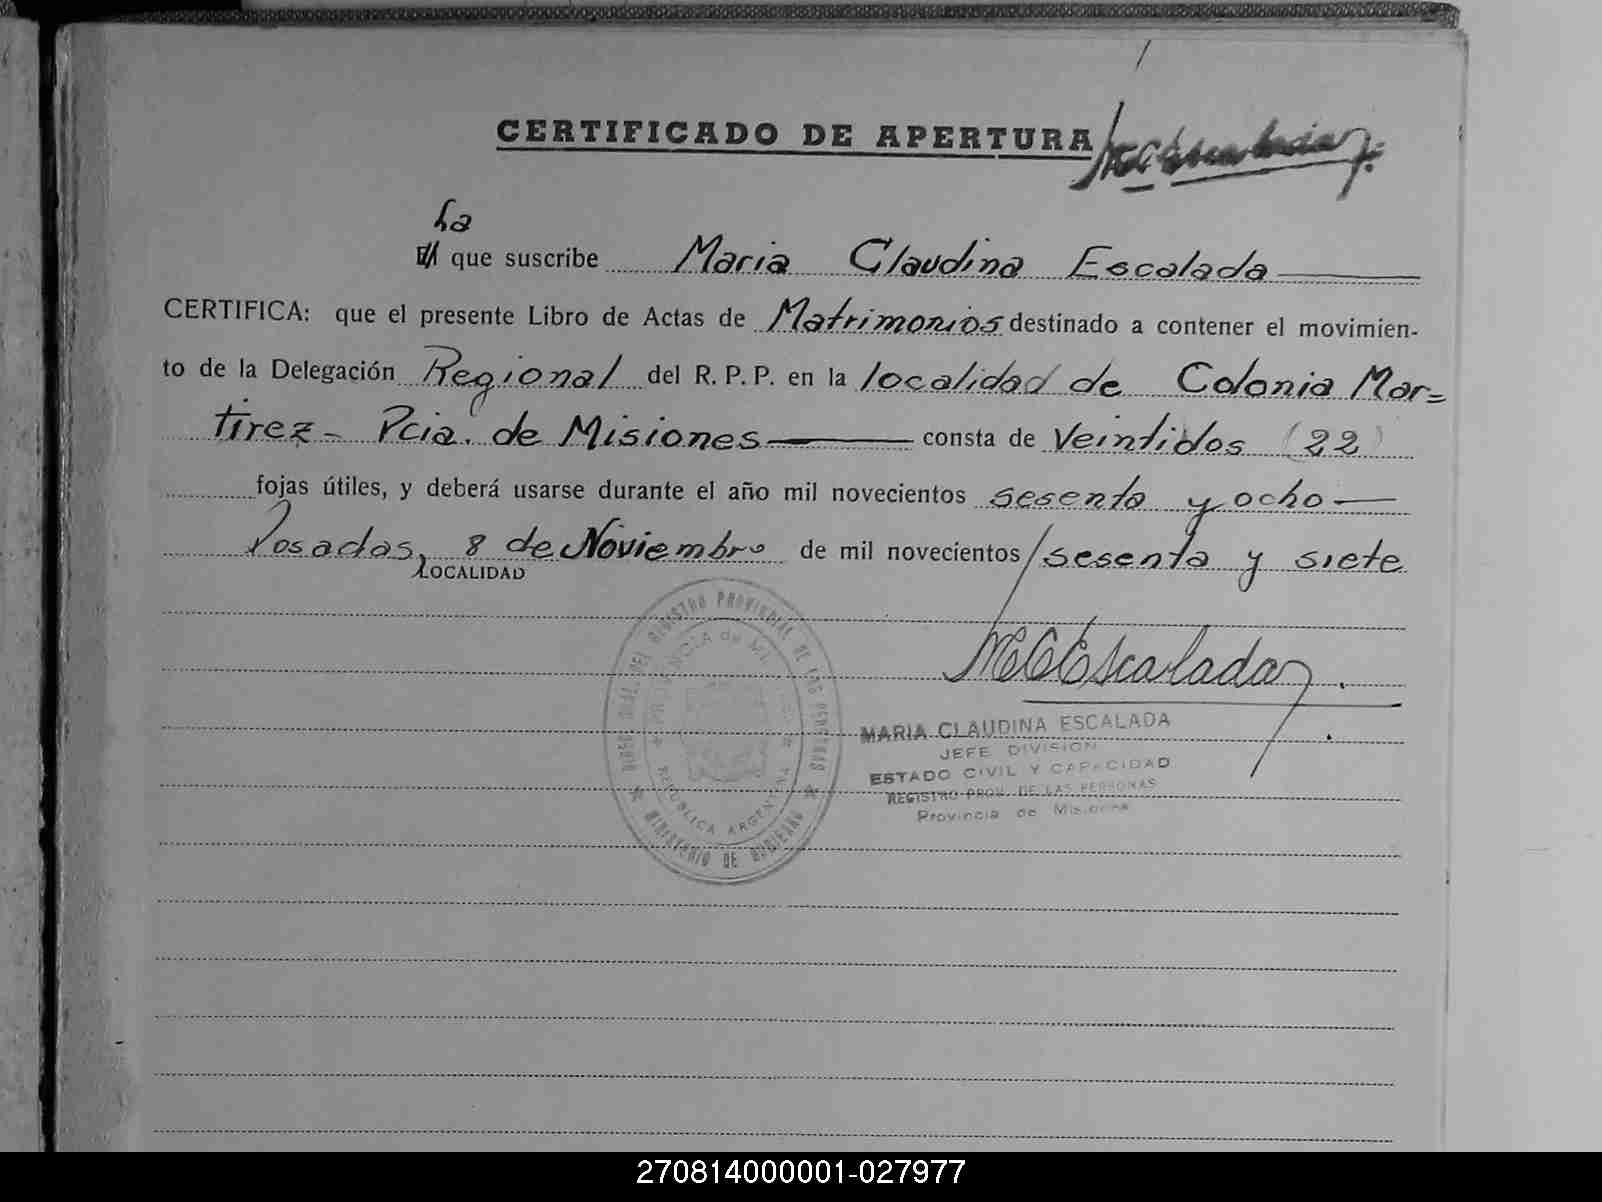 CERTIFICADO DE APERTURA
La
El que suscribe Maria Claudina Escalada
CERTIFICA: que el presente Libro de Actas de Matrimonios destinado a contener el movimien-
to de la Delegación Regional del R. P. P. en la localidad de Colonia Mar=
tirez - Pcia. de Misiones consta de Veintidos (22)
fojas útiles, y deberá usarse durante el año mil novecientos sesenta y ocho
Posadas, 8 de Noviembre de mil novecientos sesenta y siete
LOCALIDAD
MCEscalada
DEL REGISTRO PROVINCIAL DE LAS PERSONAS
MINISTERIO DE GOBIERNO
PROVINCIA de
REPUBLICA ARGENTINA
MARIA CLAUDINA ESCALADA
JEFE DIVISION
ESTADO CIVIL Y CAPACIDAD
REGISTRO PROV. DE LAS PERSONAS
Provincia de Misiones
270814000001-027977